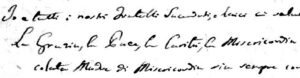 Io e tutti i nostri fratelli Sacerdoti e laici vi salu
La Grazia, la Pace, la Carità, la Misericordia
colata Madre di Misericordia sia sempre con